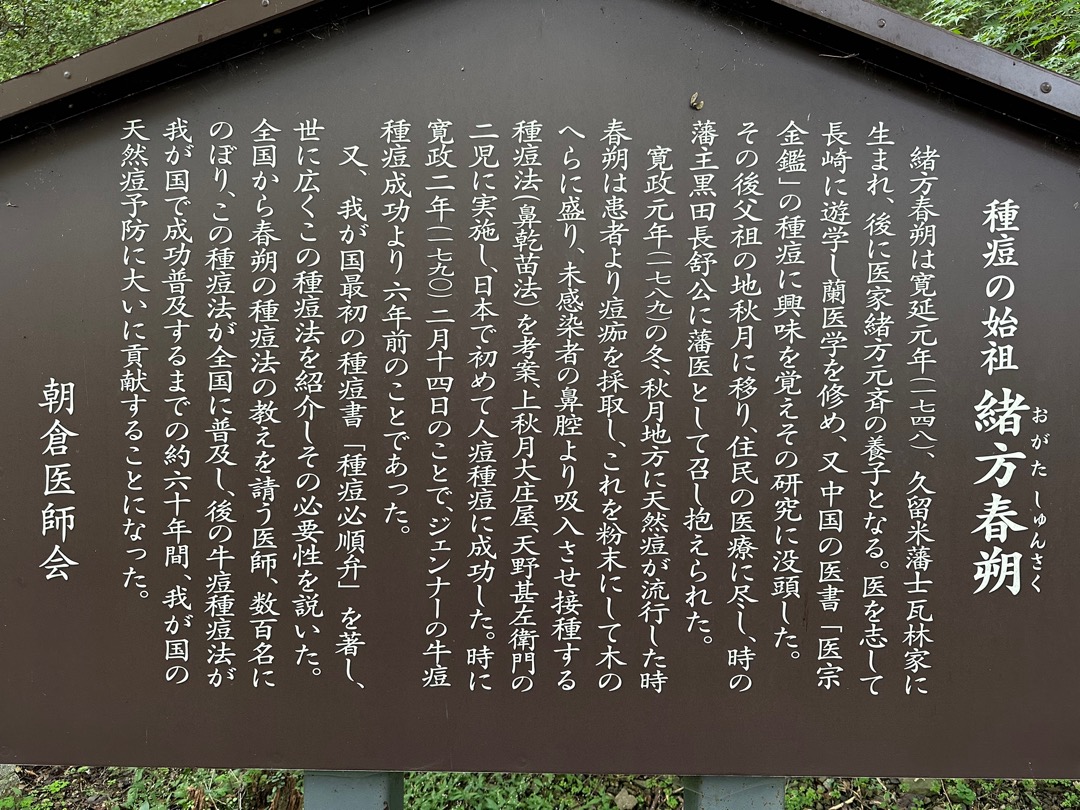 種痘の始祖 緒方春朔
おがた しゅんさく
緒方春朔は寛延元年(一七四八)、久留米藩士瓦林家に
生まれ、後に医家緒方元斉の養子となる。医を志して
長崎に遊学し蘭医学を修め、又中国の医書「医宗
金鑑」の種痘に興味を覚えその研究に没頭した。
その後父祖の地秋月に移り、住民の医療に尽し、時の
藩主黒田長舒公に藩医として召し抱えられた。
寛政元年(一七八九)の冬、秋月地方に天然痘が流行した時
春朔は患者より痘痂を採取し、これを粉末にして木の
へらに盛り、未感染者の鼻腔より吸入させ接種する
種痘法(鼻乾苗法)を考案、上秋月大庄屋、天野甚左衛門の
二児に実施し、日本で初めて人痘種痘に成功した。時に
寛政二年(一七九〇)二月十四日のことで、ジェンナーの牛痘
種痘成功より六年前のことであった。
又、我が国最初の種痘書「種痘必順弁」を著し、
世に広くこの種痘法を紹介しその必要性を説いた。
全国から春朔の種痘法の教えを請う医師、数百名に
のぼり、この種痘法が全国に普及し、後の牛痘種痘法が
我が国で成功普及するまでの約六十年間、我が国の
天然痘予防に大いに貢献することになった。
朝倉医師会